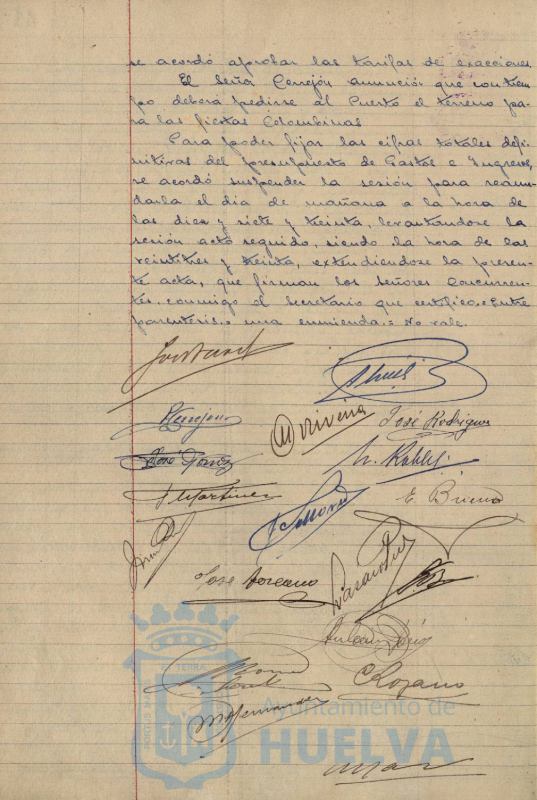 se acordó aprobar las tarifas de exacciones
El Señor Cerrejón anunció que con tiem
po deberá pedirse al Puerto el terreno pa
ra las fiestas Colombinas
Para poder fijar las cifras totales defi-
nitivas del presupuesto de Gastos e Ingresos,
se acordó suspender la sesión para reanu-
darla el día de mañana a la hora de
las diez y siete y treinta, levantándose la
sesión acto seguido, siendo la hora de las
veintitres y treinta, extendiéndose la presen-
te acta, que firman los Señores Concurren-
tes, conmigo el Secretario que certifico.=Entre
parentesis.= una enmienda.= No vale.
José Rodriguez
M. Rivera
José Gómez
E. Bueno
J Martinez
José Lorcano
C Lozano
M Hernandez
PORTUS MARIS
ET TERRA
Ayuntamiento de
HUELVA